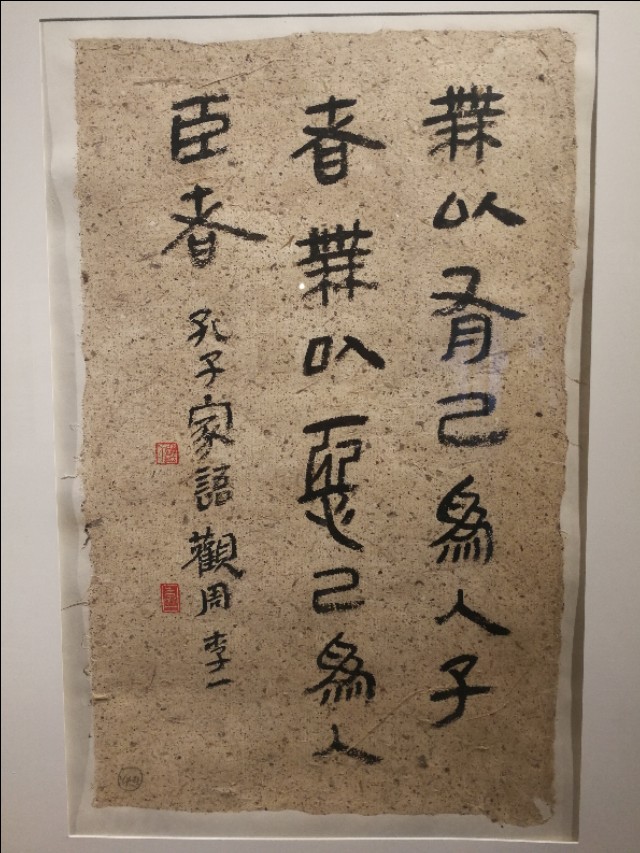 無以有己為人子
者無以惡己為人
臣者 孔子家語觀周 李一